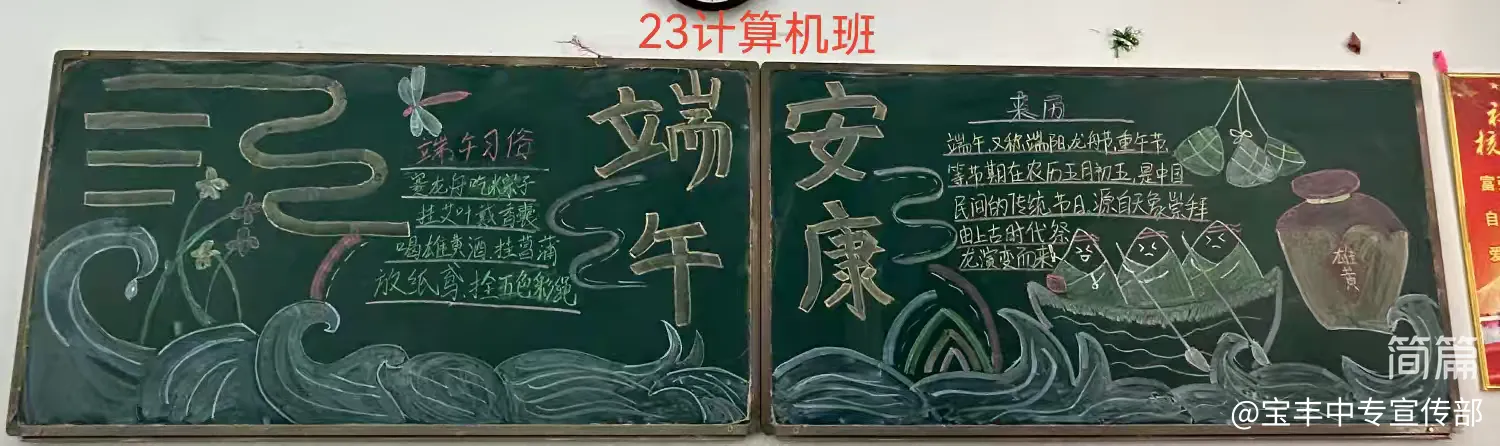 23计算机班
端午
端午习俗
赛龙舟吃粽子
挂艾叶戴香囊
喝雄黄酒,挂菖蒲
放纸鸢,拴五色彩绳
安康
来历
端午,又称端阳,龙舟节,重午节,
等节期在农历五月初五,是中国
民间的传统节日,源自天象崇拜
由上古时代祭
龙演变而来
雄黄
核
富
自
爱
简篇
@宝丰中专宣传部